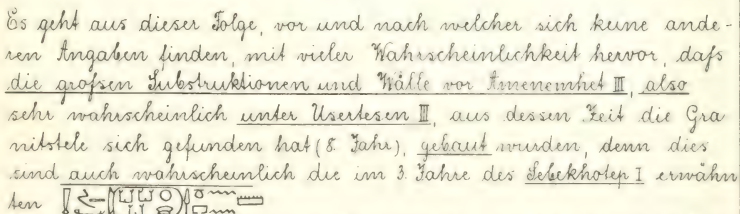 Es geht aus dieser Folge, vor und nach welcher sich keine ande-
ren Angaben finden, mit vieler Wahrscheinlichkeit hervor, dafs
die grofsen Substruktionen und Wälle vor Amenemhet III, also
sehr wahrscheinlich unter Usertesen III, aus dessen Zeit die Gra
nitstele sich gefunden hat (8. Jahr), gebaut wurden, denn dies
sind auch wahrscheinlich die im 3. Jahre des Sebekhotep I erwähn
ten